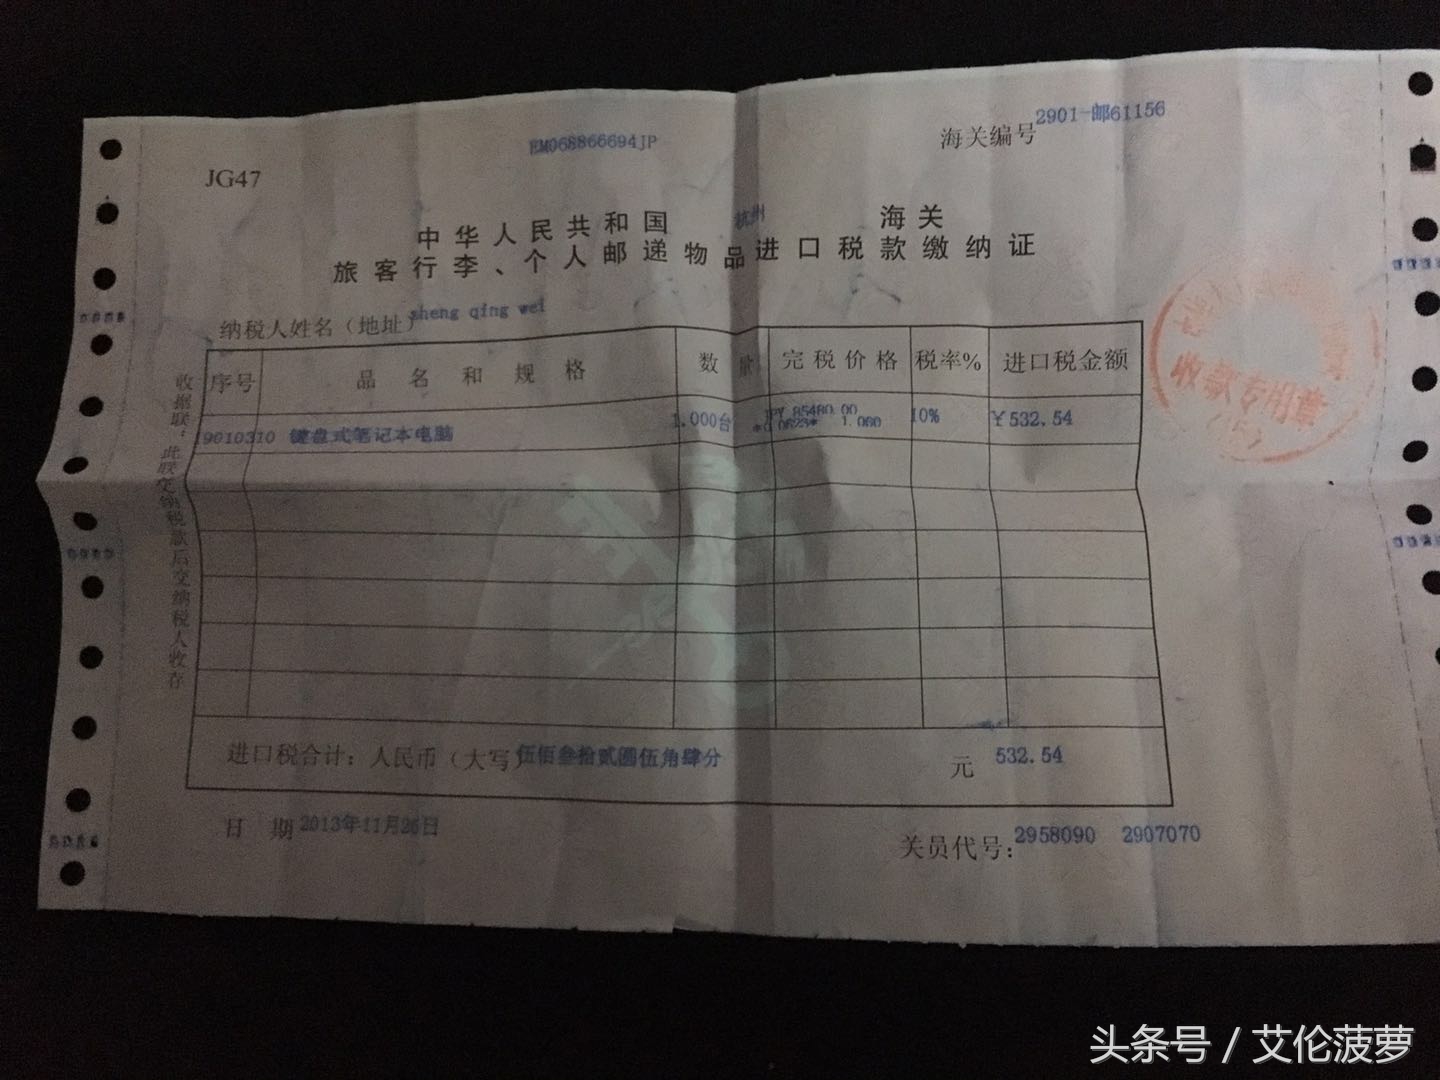 2901-邮61156
EM068866694JP
海关编号
JG47
中华人民共和国 杭州 海关
旅客行李、个人邮递物品进口税款缴纳证
纳税人姓名（地址） sheng qing wei
序号 品名和规格 数量 完税价格 税率% 进口税金额
19010310 键盘式笔记本电脑 1.000台 JPY 85480.00 10% ￥532.54
*0.0623* 1.000
进口税合计：人民币（大写） 伍佰叁拾贰圆伍角肆分 元 532.54
日期 2013年11月26日
关员代号： 2958090 2907070
收据联：此联交纳税款后交纳税人收存
收款专用章
头条号 / 艾伦菠萝